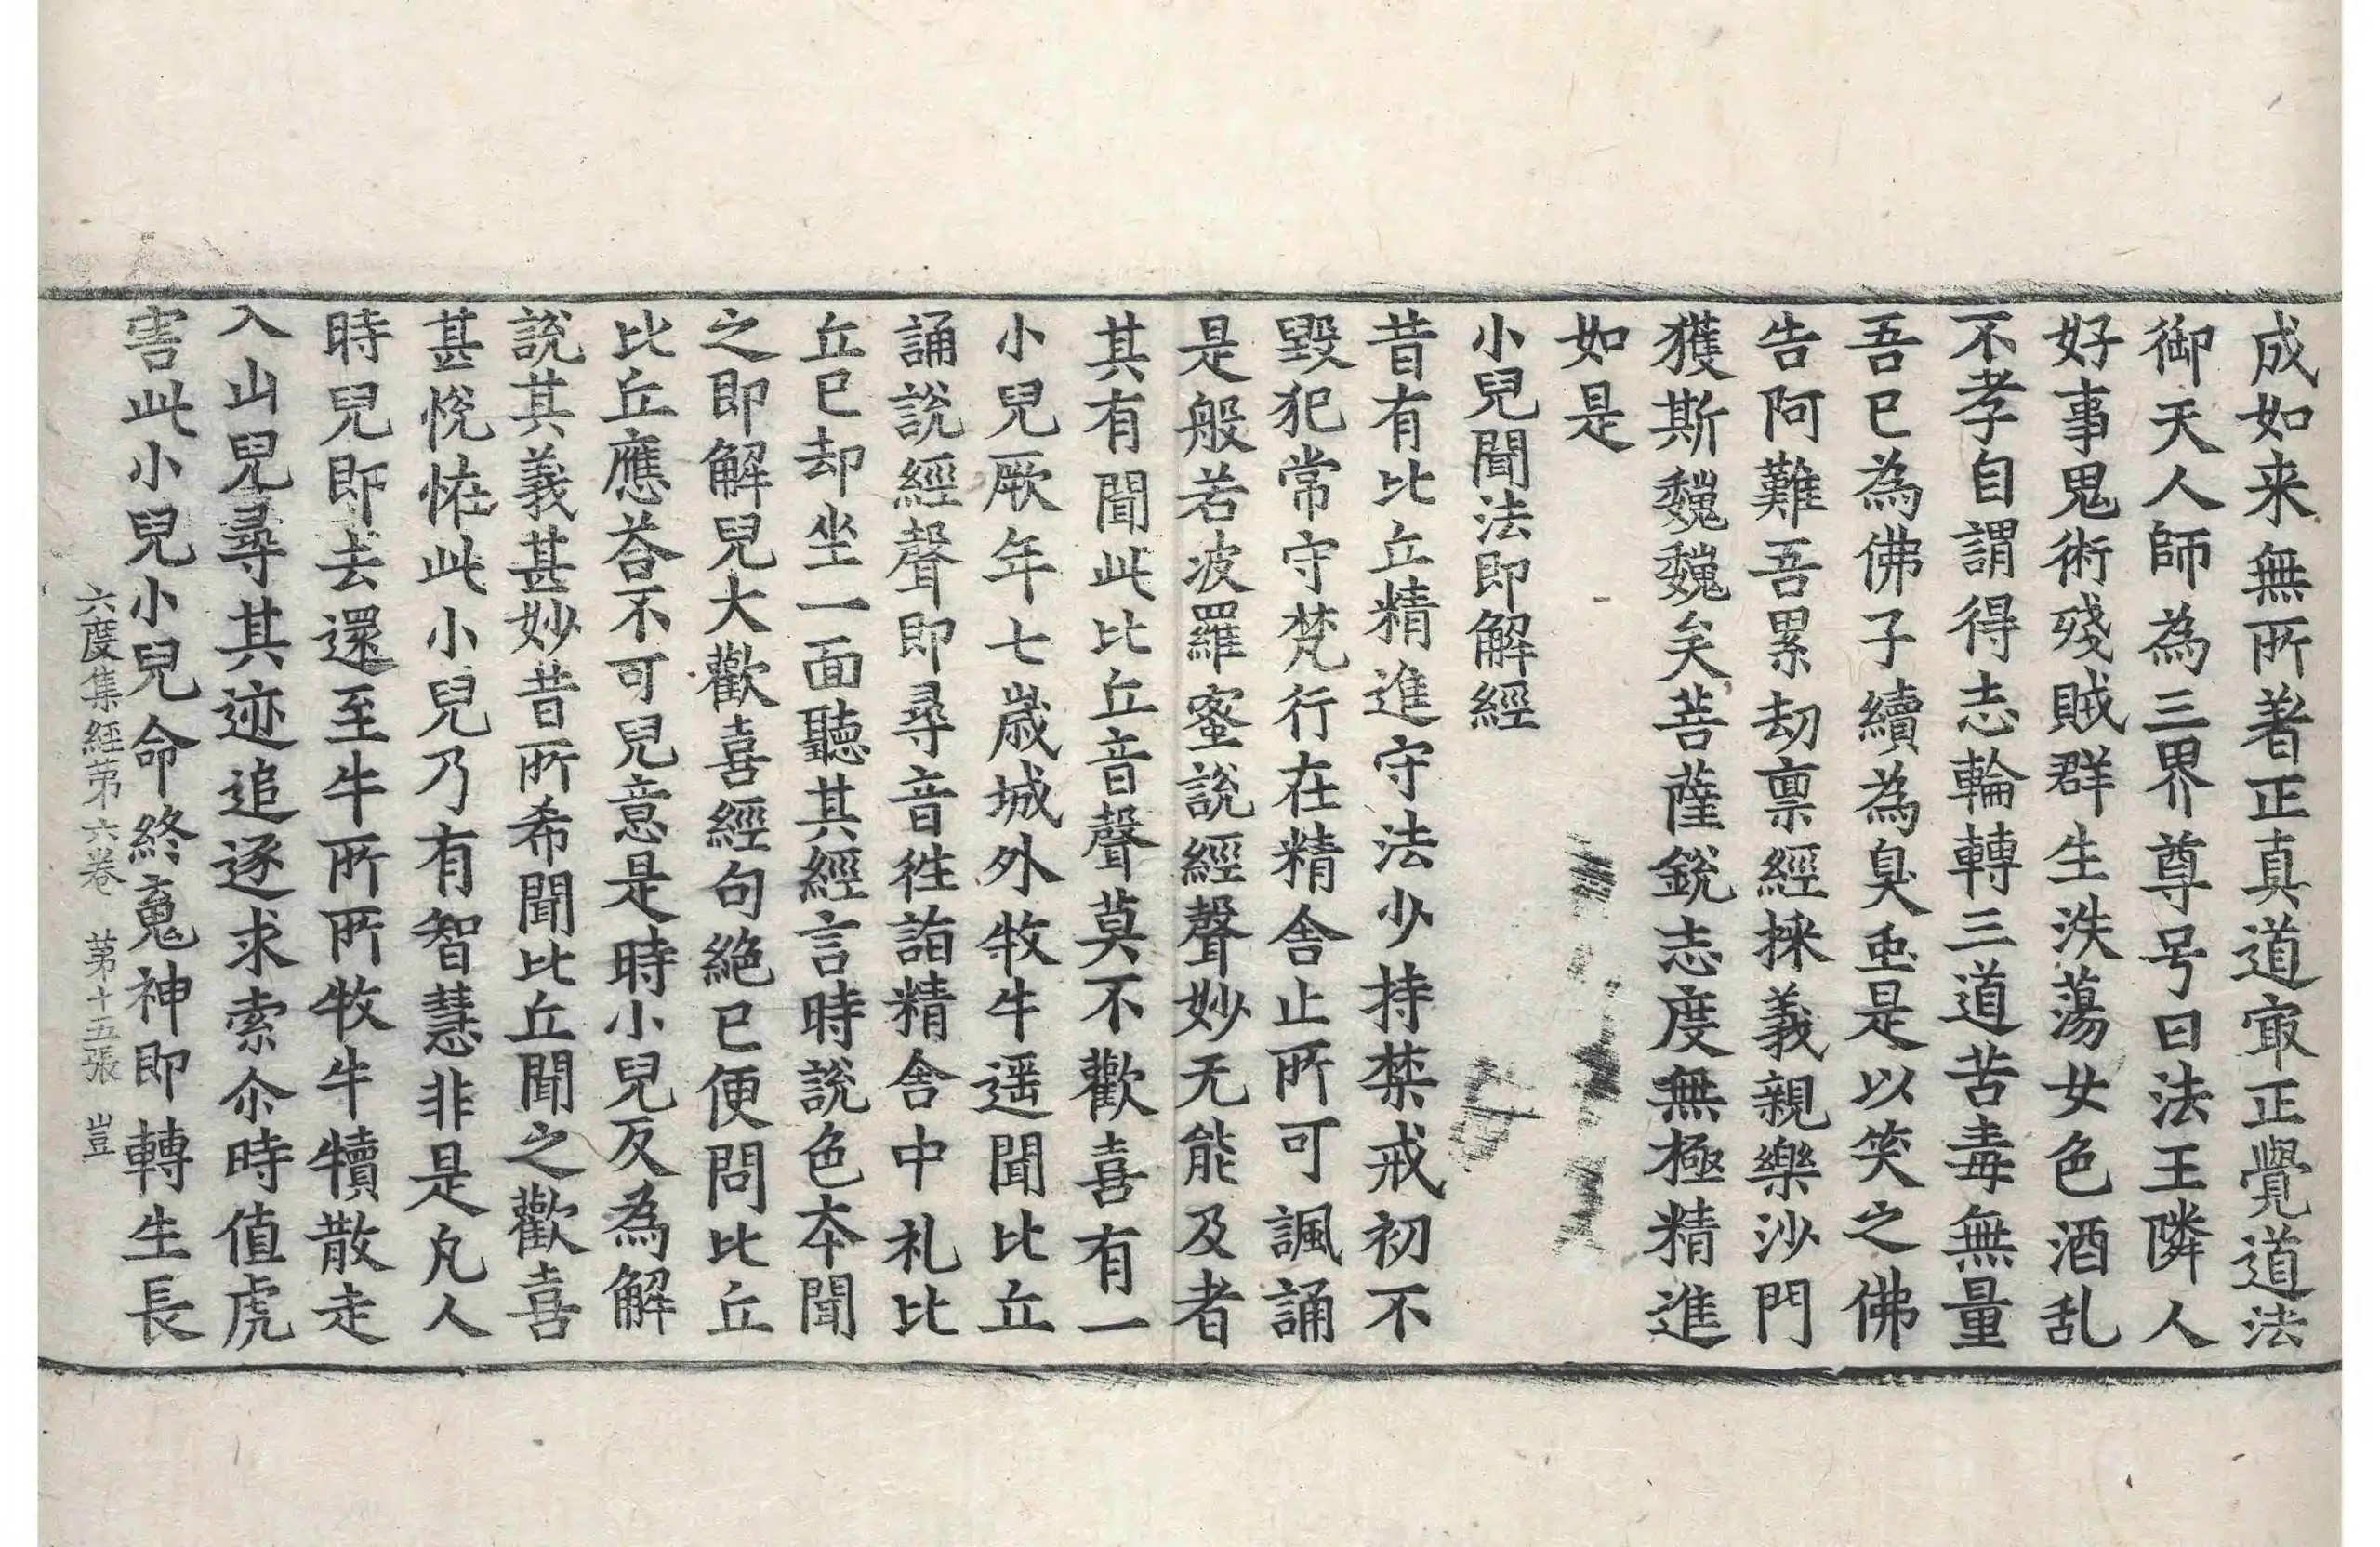 成如来無所著正真道㝡正覺道法
御天人師為三界尊号曰法王隣人
好事鬼術殘賊群生泆蕩女色酒乱
不孝自謂得志輪轉三道苦毒無量
吾已為佛子續為臭䖝是以笑之佛
告阿難吾累劫禀經採義親樂沙門
獲斯巍巍矣菩薩銳志度無極精進
如是
小兒聞法即解經
昔有比丘精進守法少持禁戒初不
毀犯常守梵行在精舍止所可諷誦
是般若波羅蜜說經聲妙无能及者
其有聞此比丘音聲莫不歡喜有一
小兒厥年七歲城外牧牛遥聞比丘
誦說經聲即尋音徃詣精舍中礼比
丘已却坐一面聽其經言時說色本聞
之即解兒大歡喜經句絕已便問比丘
比丘應荅不可兒意是時小兒反為解
說其義甚妙昔所希聞比丘聞之歡喜
甚恱恠此小兒乃有智慧非是凡人
時兒即去還至牛所所牧牛犢散走
入山兒尋其迹追逐求索尒時值虎
害此小兒小兒命終䰟神即轉生長
六度集經苐六卷 苐十五張 豈